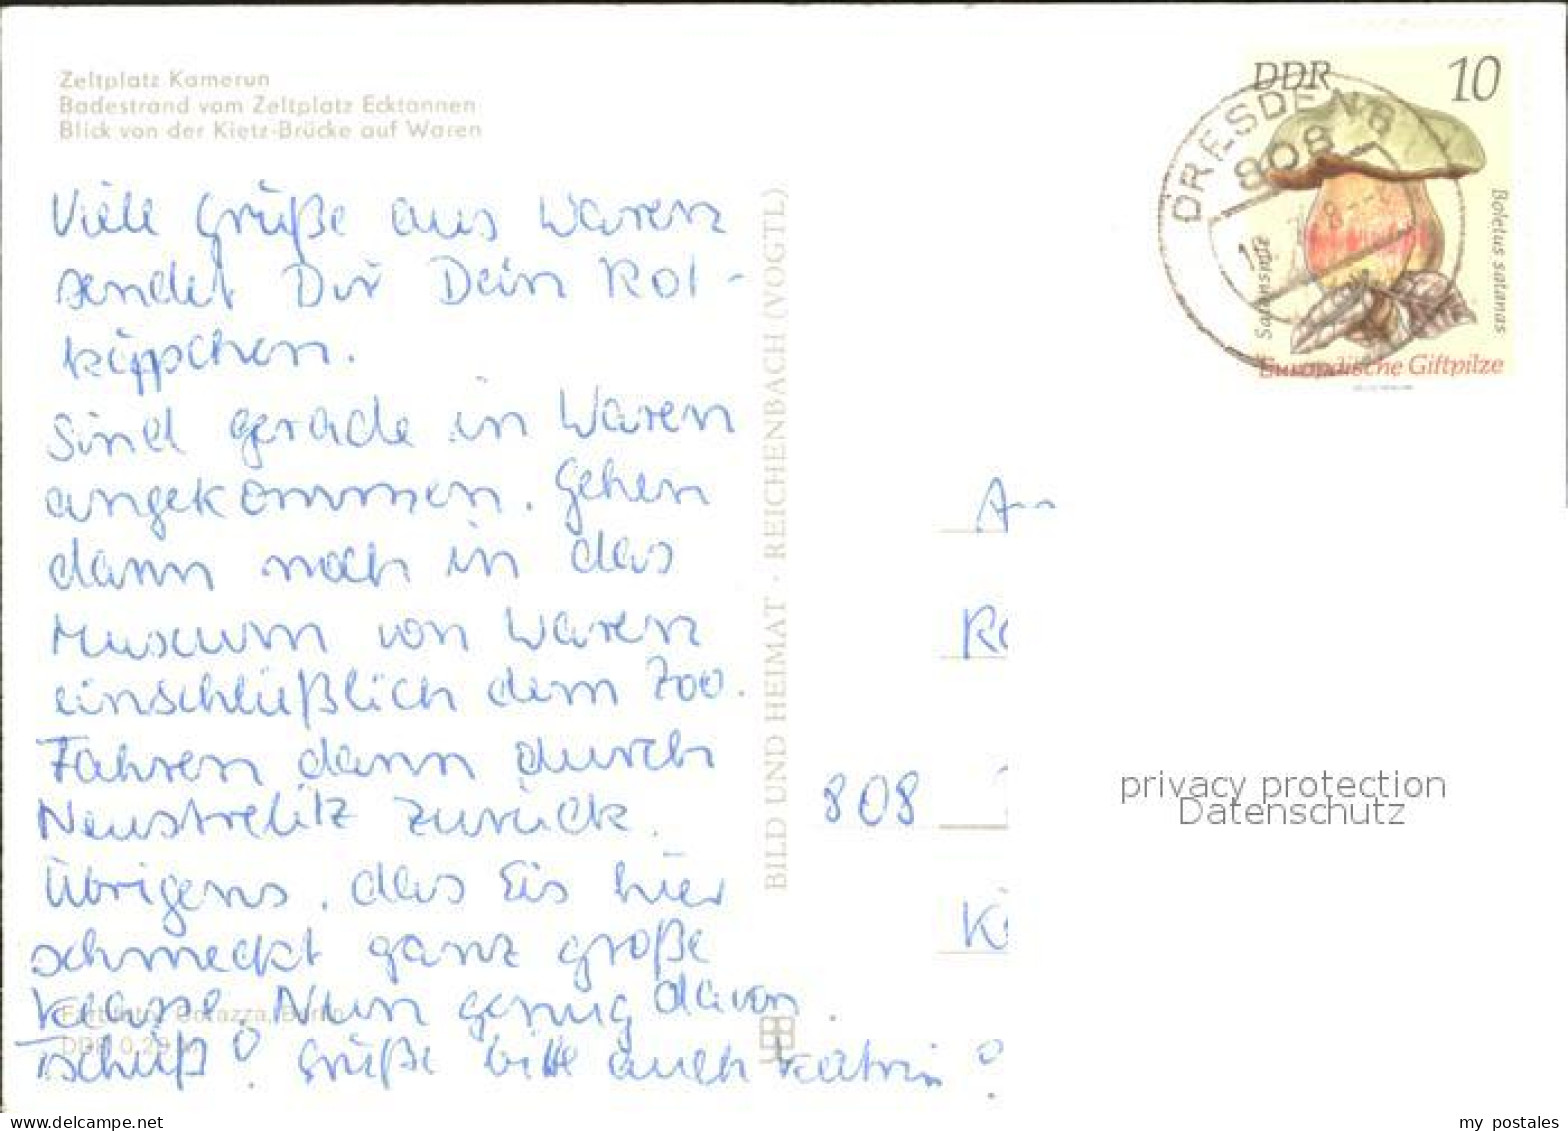 Zeltplatz Kamerun
Badestrand vom Zeltplatz Ecktannen
Blick von der Kietz-Brücke auf Waren
Viele Grüße aus Waren
sendet Dir Dein Rot-
käppchen.
Sind gerade in Waren
angekommen. Gehen
dann noch in das
Museum von Waren
einschließlich dem Zoo.
Fahren dann durch
Neustrelitz zurück.
Übrigens, das Eis hier
schmeckt ganz große
Klasse. Nun genug davon.
Tschüß! Grüße bitte auch Katrin!
BILD UND HEIMAT · REICHENBACH (VOGTL)
DDR 10
Boletus satanas
Satanspilz
Europäische Giftpilze
DRESDEN 8
808
808
privacy protection
Datenschutz
www.delcampe.net
my_postales